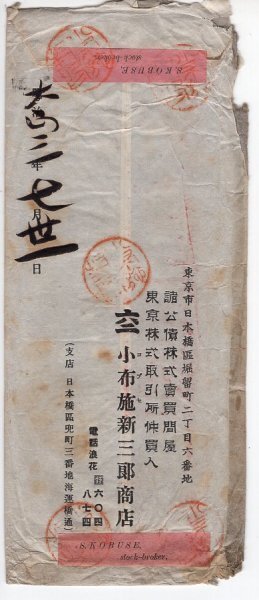 S. KOBUSE,
stock-broker.
東京市日本橋區堀留町二丁目六番地
諸公債株式賣買問屋
東京株式取引所仲買人
小布施新三郎商店
電話浪花 六〇四
八七四
(支店 日本橋區兜町三番地海運橋通)
大正二年七月卅一日
S. KOBUSE,
stock-broker.